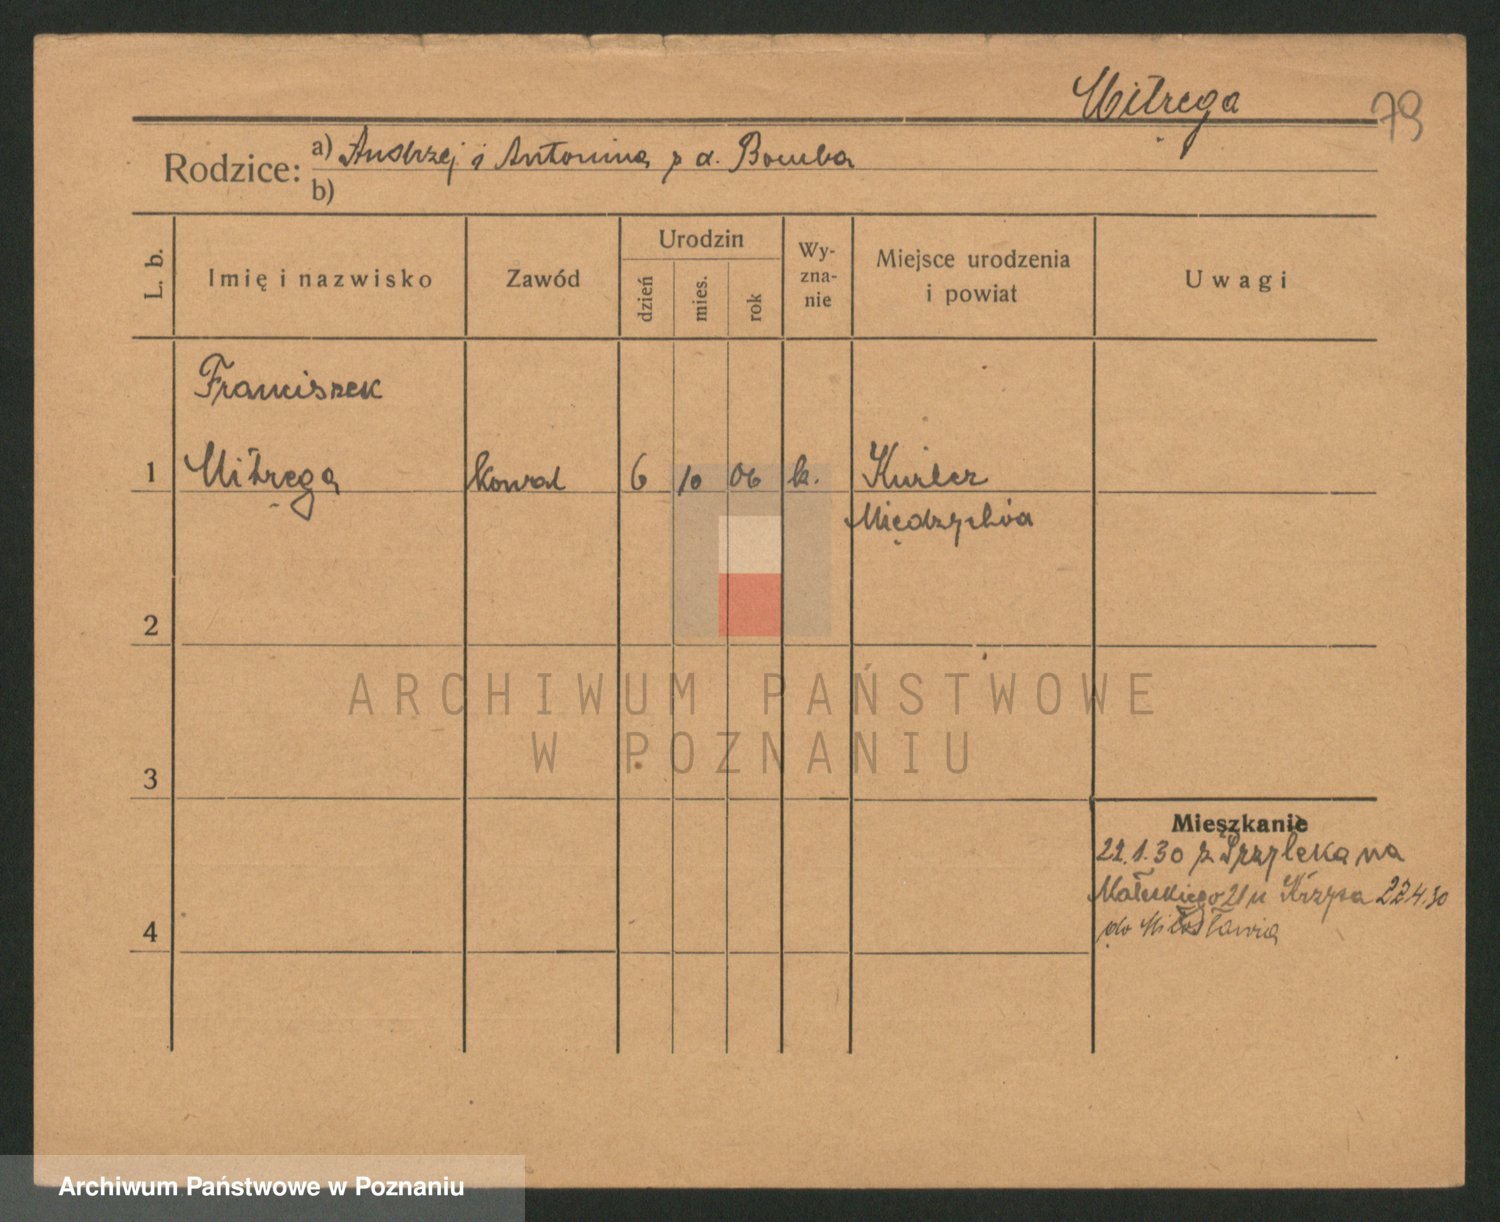 Mitręga
79
Rodzice: a) Andrzej i Antonina z d. Bomba
b)
L. b.
Imię i nazwisko
Zawód
Urodzin
dzień
mies.
rok
Wy-
zna-
nie
Miejsce urodzenia
i powiat
Uwagi
Franciszek
1 Mitręga kowal 6 10 06 k.
Międzychód
2
3
4
Mieszkanie
22.1.30 z na
Małeckiego 21 u 22 4.30
do Miłosławia
ARCHIWUM PAŃSTWOWE
W POZNANIU
Archiwum Państwowe w Poznaniu